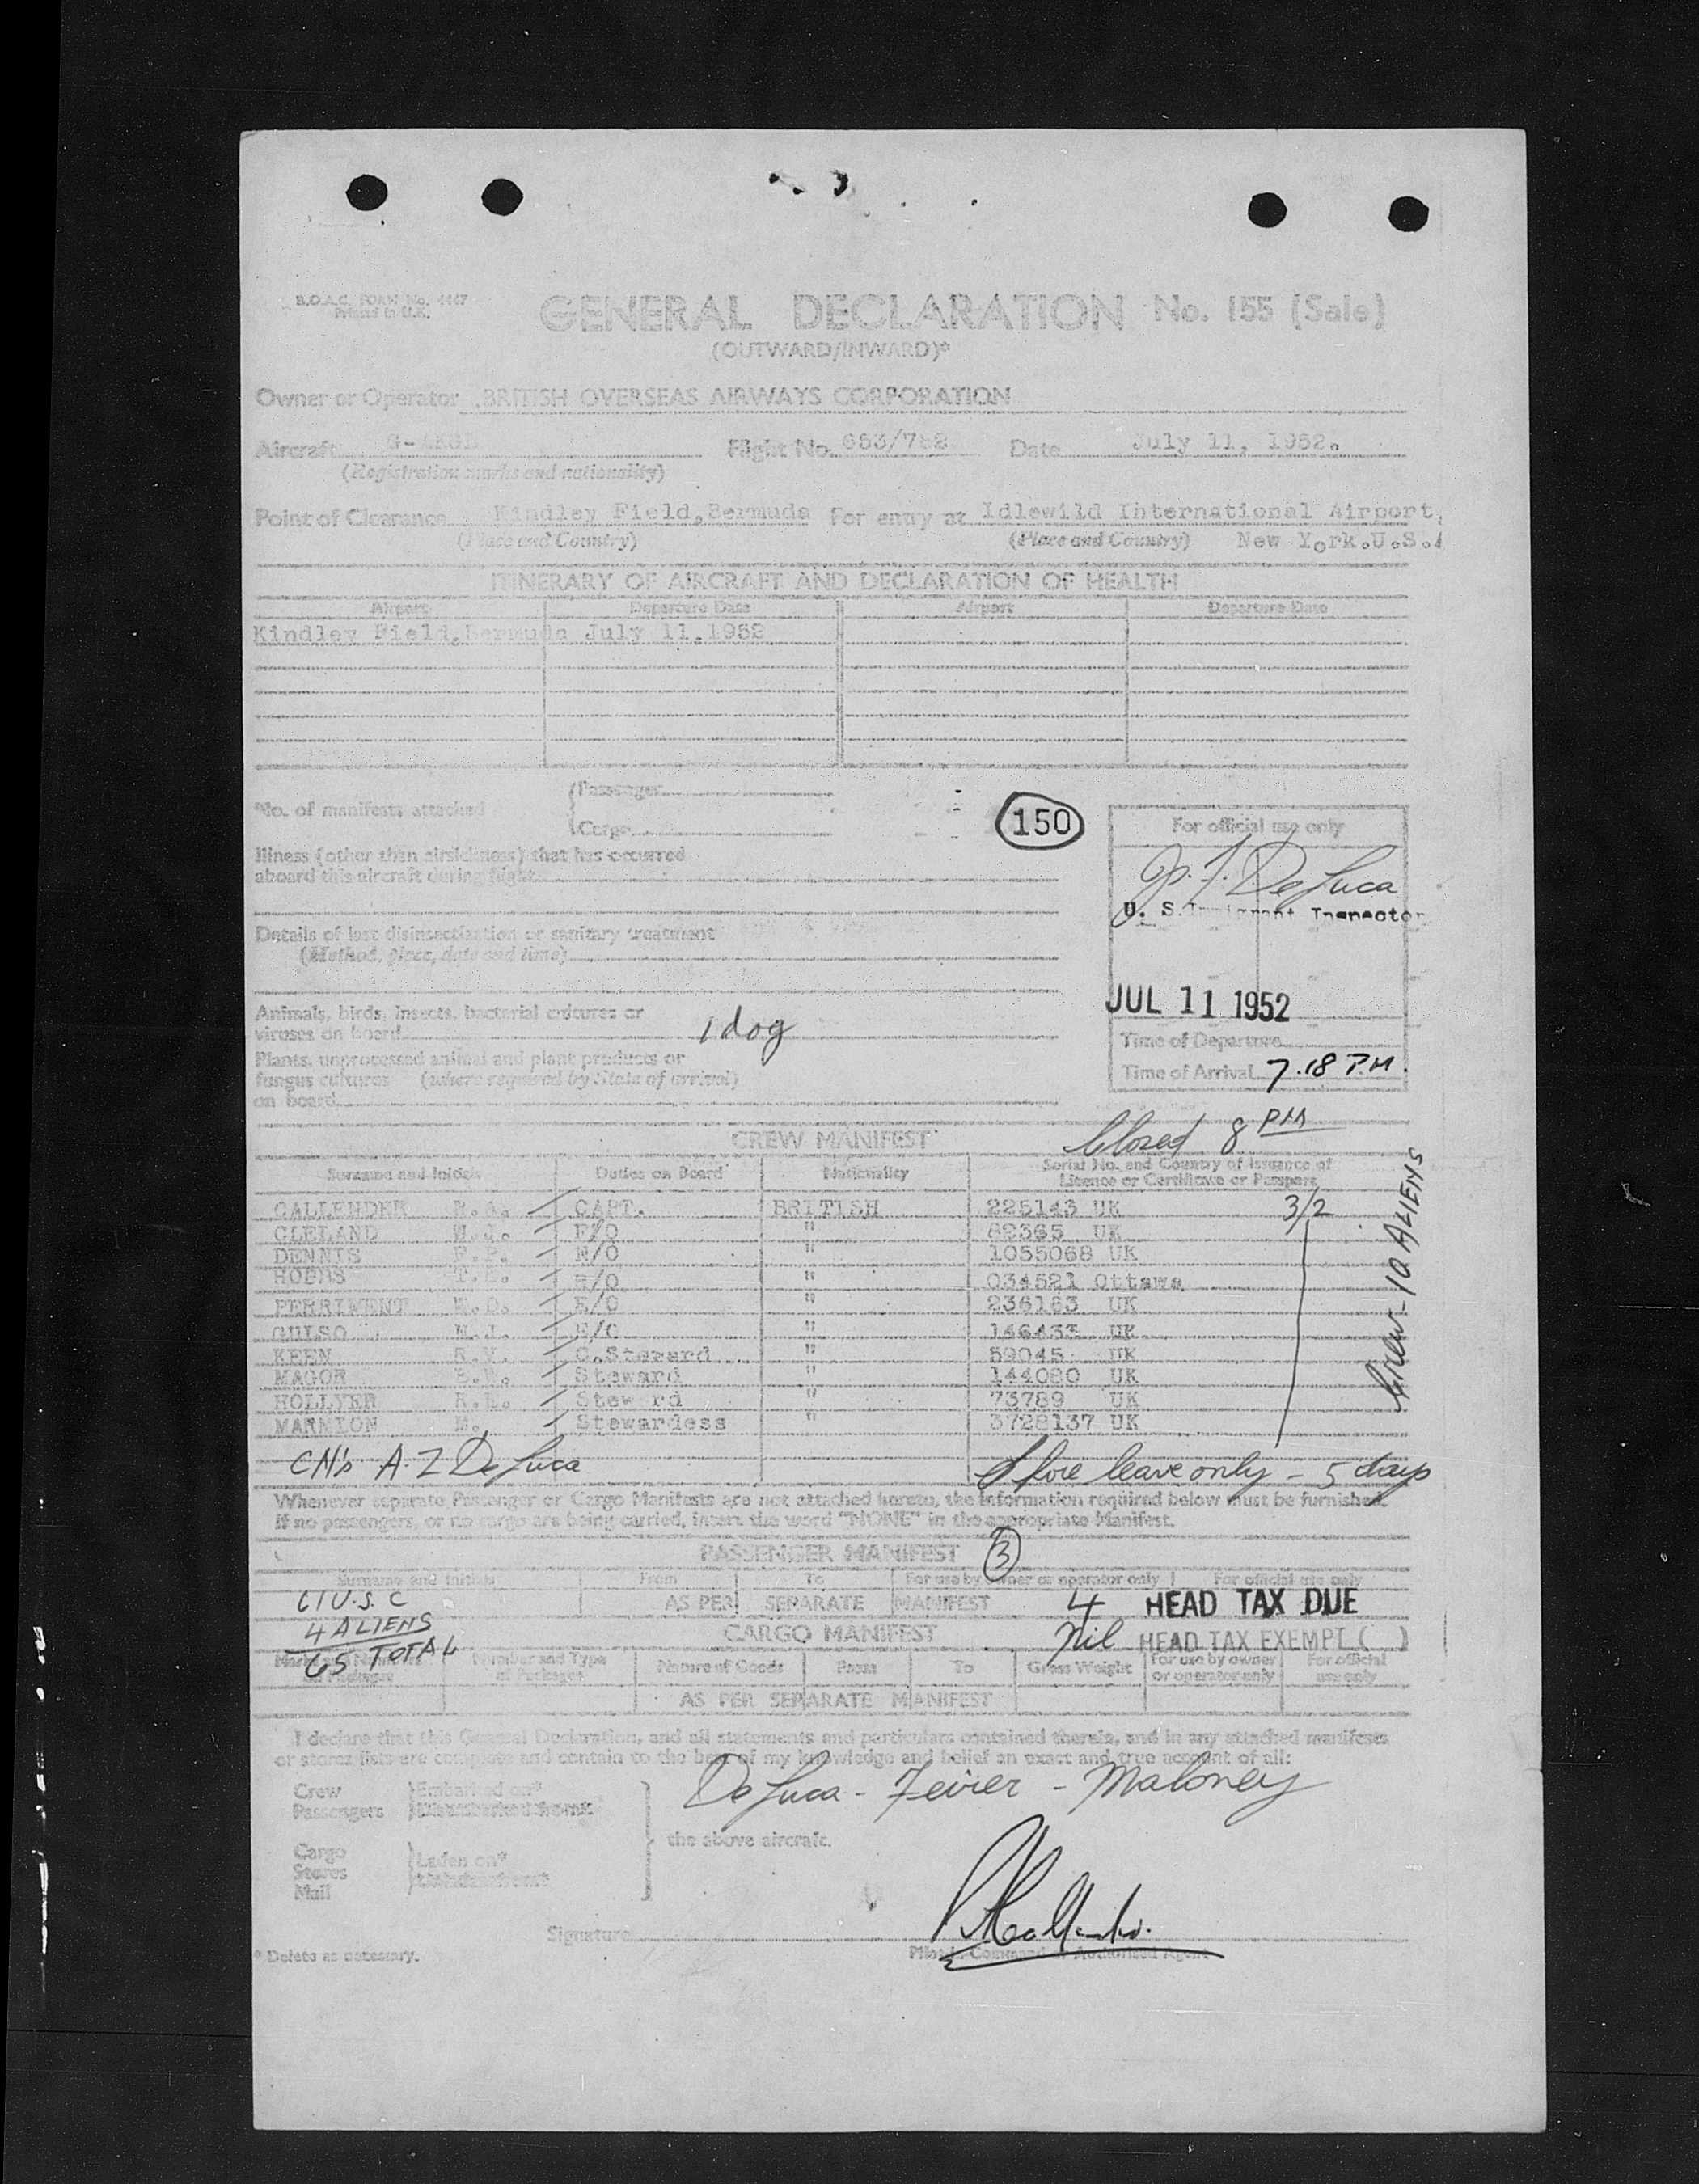 B.O.A.C. FORM No. 4447
Printed in U.K.
GENERAL DECLARATION No. 155 (Sale)
(OUTWARD/INWARD)*
Owner or Operator BRITISH OVERSEAS AIRWAYS CORPORATION
Aircraft Flight No. 663/752 Date July 11, 1952.
(Registration marks and nationality)
Point of Clearance Kindley Field, Bermuda For entry at Idlewild International Airport,
(Place and Country) (Place and Country) New York.U.S.A
ITINERARY OF AIRCRAFT AND DECLARATION OF HEALTH
Airport Departure Date Airport Departure Date
Kindley Field, Bermuda July 11,1952
*No. of manifests attached
Passenger
Cargo
150
For official use only
Illness (other than airsickness) that has occurred
aboard this aircraft during flight
J. F. DeLuca
U. S. Immigrant Inspector
Details of last disinsectization or sanitary treatment
(Method, place, date and time)
JUL 11 1952
Animals, birds, insects, bacterial cultures or
viruses on board 1 dog
Time of Departure
Plants, unprocessed animal and plant products or
fungus cultures (where required by State of arrival)
on board
Time of Arrival 7.18 P.M.
Closed 8 PM
CREW MANIFEST
Surname and Initials Duties on Board Nationality Serial No. and Country of Issuance of
Licence or Certificate or Passport
CALLENDER R.A. CAPT. BRITISH 225143 UK 3/2
CLELAND W.J. F/O " 82365 UK
DENNIS F.P. N/O " 1055068 UK
HOBBS T.E. R/O " 034521 Ottawa
PERRIMENT W.O. E/O " 236163 UK
GULSO N.J. E/O " 146433 UK
KEEN R.V. C.Steward " 59045 UK
MAGOR Steward " 144080 UK
HOLLYER R.L. Steward " 73789 UK
MANNION M. Stewardess " 3728137 UK
Crew - 10 ALIENS
CN's A-Z DeLuca
Shore leave only - 5 days
Whenever separate Passenger or Cargo Manifests are not attached hereto, the information required below must be furnished.
If no passengers, or no cargo are being carried, insert the word "NONE" in the appropriate Manifest.
PASSENGER MANIFEST 3
Surname and Initials From To For use by owner or operator only For official use only
61 U.S. C
AS PER SEPARATE MANIFEST 4 HEAD TAX DUE
4 ALIENS
CARGO MANIFEST Nil HEAD TAX EXEMPT ( )
65 TOTAL
Marks and Numbers on Packages Number and Type of Packages Nature of Goods From To Gross Weight For use by owner or operator only For official use only
AS PER SEPARATE MANIFEST
I declare that this General Declaration, and all statements and particulars contained therein, and in any attached manifests
or stores lists are complete and contain to the best of my knowledge and belief an exact and true account of all:
DeLuca - Feirer - Maloney
Crew Embarked on*
Passengers Disembarked from*
the above aircraft.
Cargo
Stores Laden on*
Mail Unladen from*
Signature
* Delete as necessary.
Pilot in Command or Authorised Agent